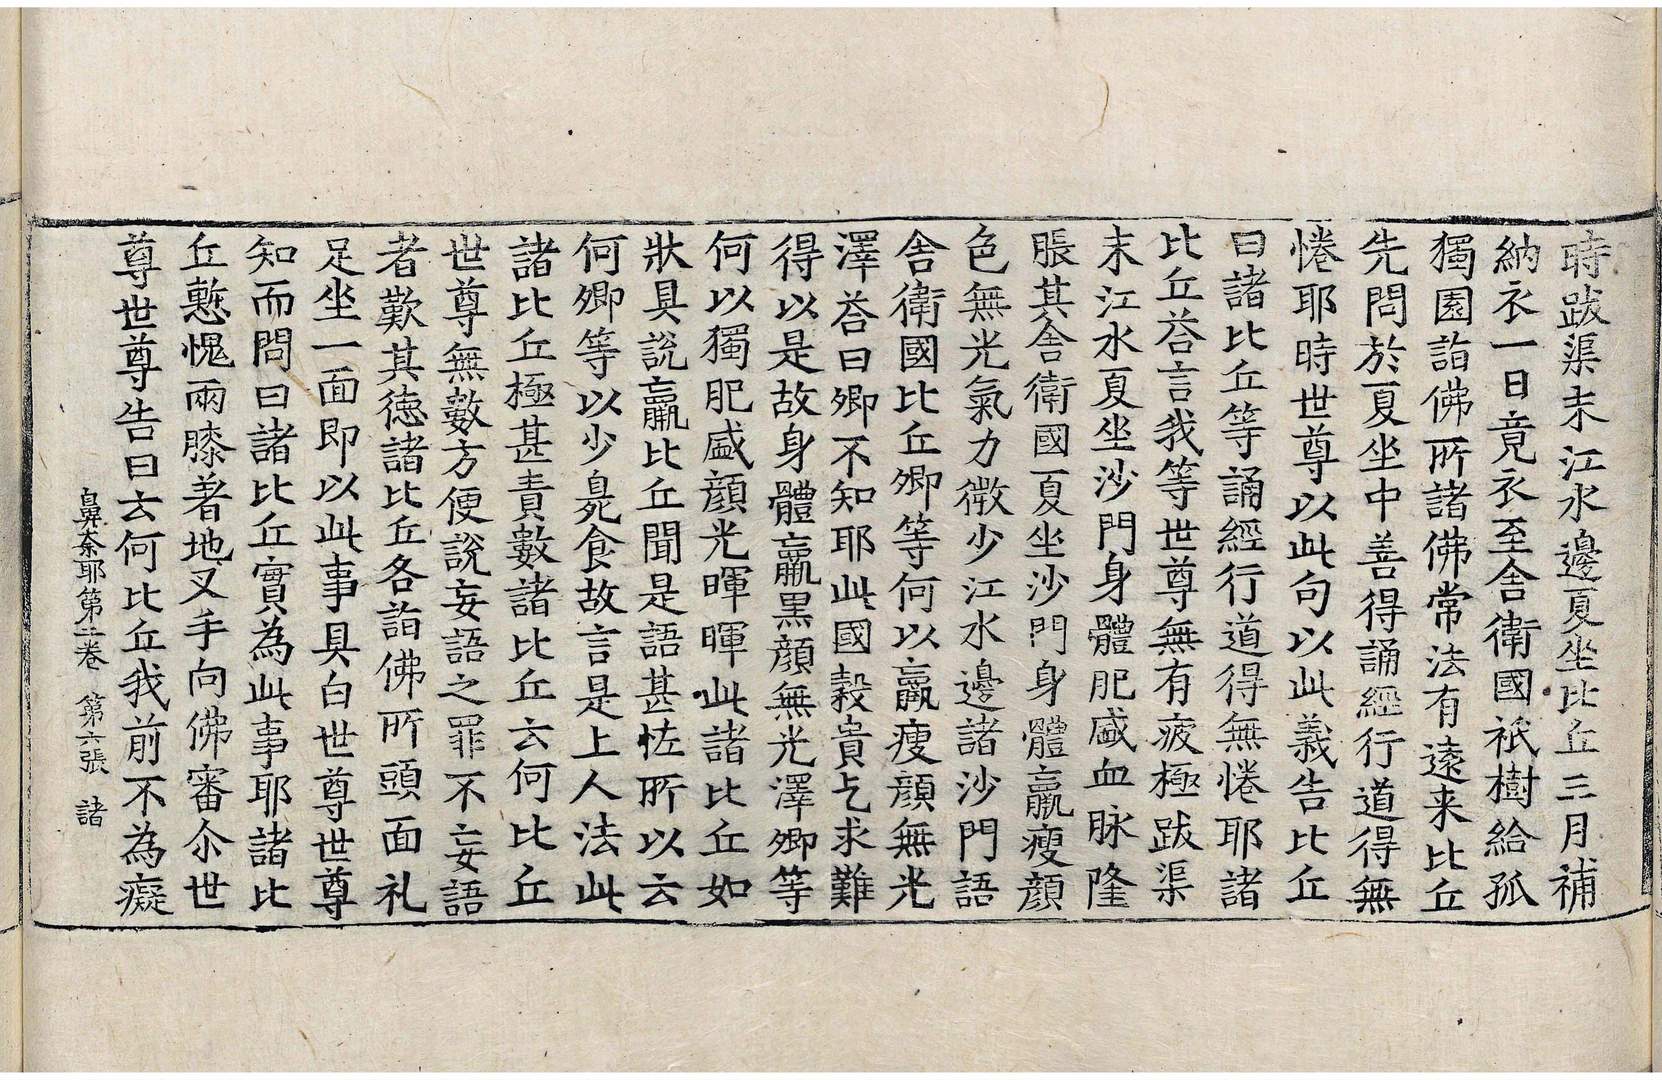 時跋渠末江水邊夏坐比丘三月補
納衣一日竟衣至舍衛國祇樹給孤
獨園詣佛所諸佛常法有遠来比丘
先問於夏坐中善得誦經行道得無
惓耶時世尊以此句以此義告比丘
曰諸比丘等誦經行道得無惓耶諸
比丘荅言我等世尊無有疲極跋渠
末江水夏坐沙門身體肥盛血脉隆
脹其舍衛國夏坐沙門身體羸瘦顔
色無光氣力微少江水邊諸沙門語
舍衛國比丘卿等何以羸瘦顔無光
澤荅曰卿不知耶此國穀貴乞求難
得以是故身體羸黒顔無光澤卿等
何以獨肥盛顔光暉暉此諸比丘如
狀具說羸比丘聞是語甚恠所以云
何卿等以少臰食故言是上人法此
諸比丘極甚責數諸比丘云何比丘
世尊無數方便說妄語之罪不妄語
者歎其徳諸比丘各詣佛所頭面礼
足坐一面即以此事具白世尊世尊
知而問曰諸比丘實為此事耶諸比
丘慙愧兩膝著地叉手向佛審尒世
尊世尊告曰云何比丘我前不為癡
鼻奈耶第二卷 第六張 諸